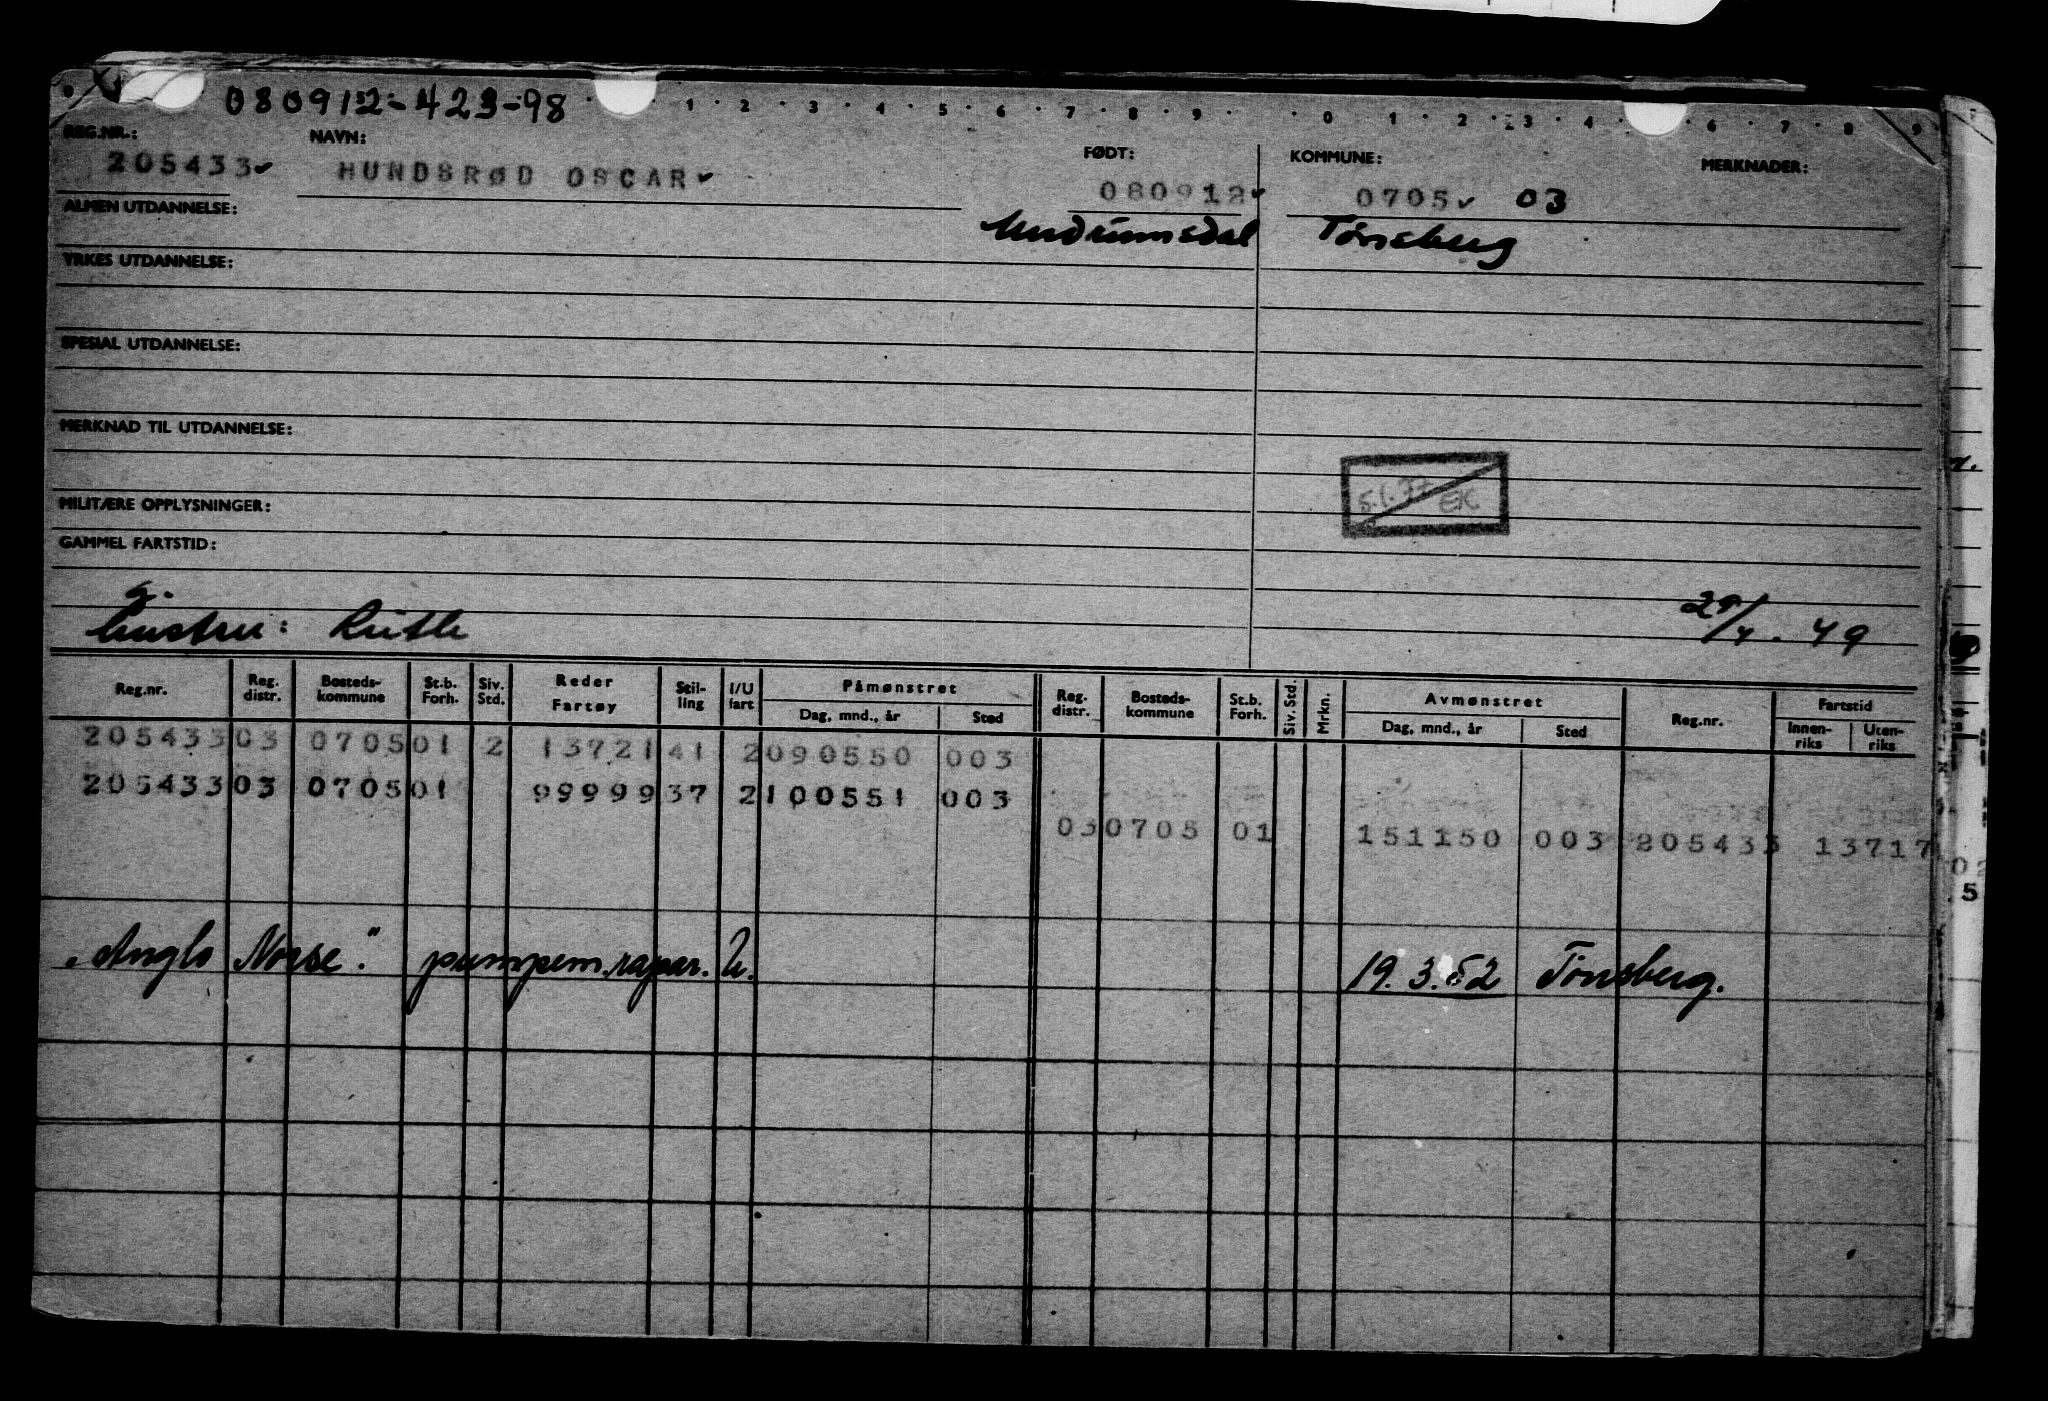 080912-423-98
1 2 3 4 5 6 7 8 9 0 1 2 3 4 6 7 8 9
REG.NR.: NAVN: FØDT: KOMMUNE: MERKNADER:
205433 HUNDSRØD OSCAR 080912 0705 03
ALMEN UTDANNELSE: Undrumsdal Tønsberg
YRKES UTDANNELSE:
SPESIAL UTDANNELSE:
MERKNAD TIL UTDANNELSE:
5.1.77 EK
MILITÆRE OPPLYSNINGER:
GAMMEL FARTSTID:
g.
hustru: Ruth 29/4.49
Reg.nr. Reg. distr. Bosteds-kommune St.b. Forh. Siv. Std. Reder Fartøy Stil-ling I/U fart Påmønstret Dag, mnd., år Sted Reg. distr. Bosteds-kommune St.b. Forh. Siv. Std. Mrkn. Avmønstret Dag, mnd., år Sted Reg.nr. Fartstid Innen-riks Uten-riks
205433 03 0705 01 2 13721 41 2 090550 003
205433 03 0705 01 99999 37 2 100551 003
03 0705 01 151150 003 205433 13717
5
"Anglo Norse". pumpem. repar. U. 19.3.52 Tønsberg.